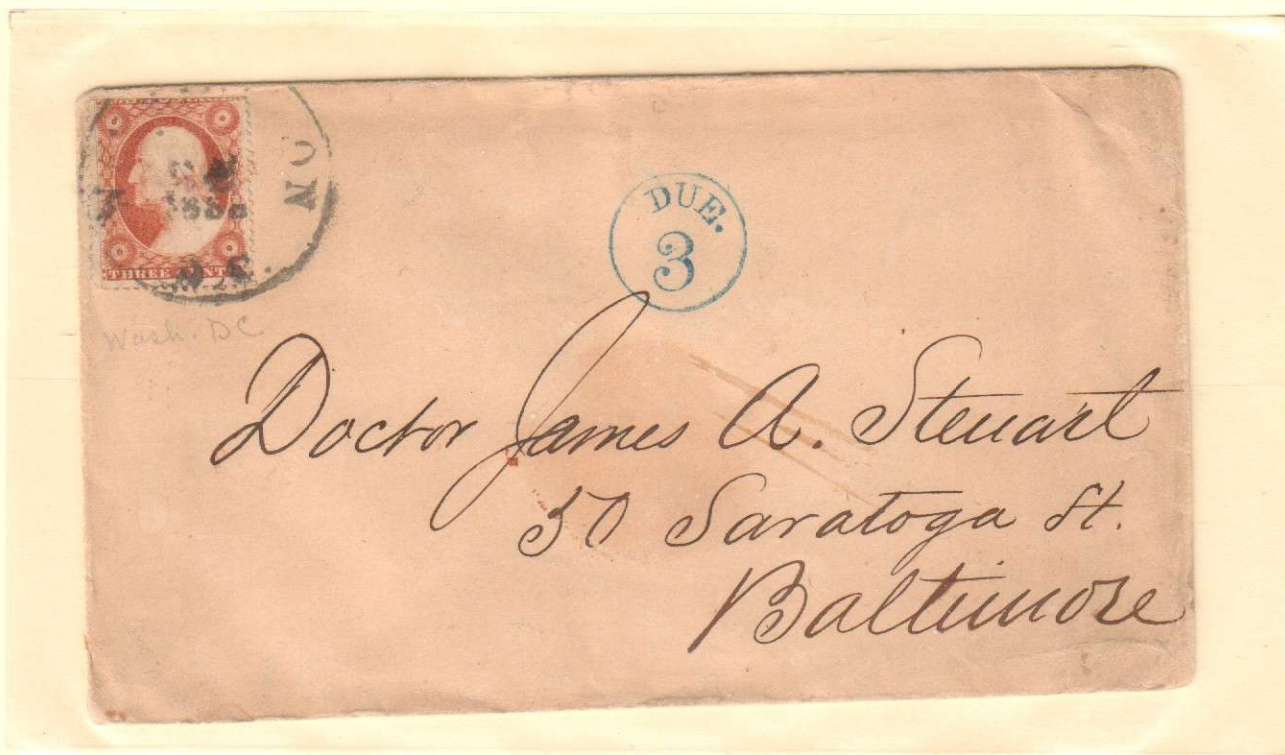 THREE CENTS
DUE.
3
Wash. DC
Doctor James A. Steuart
50 Saratoga St.
Baltimore